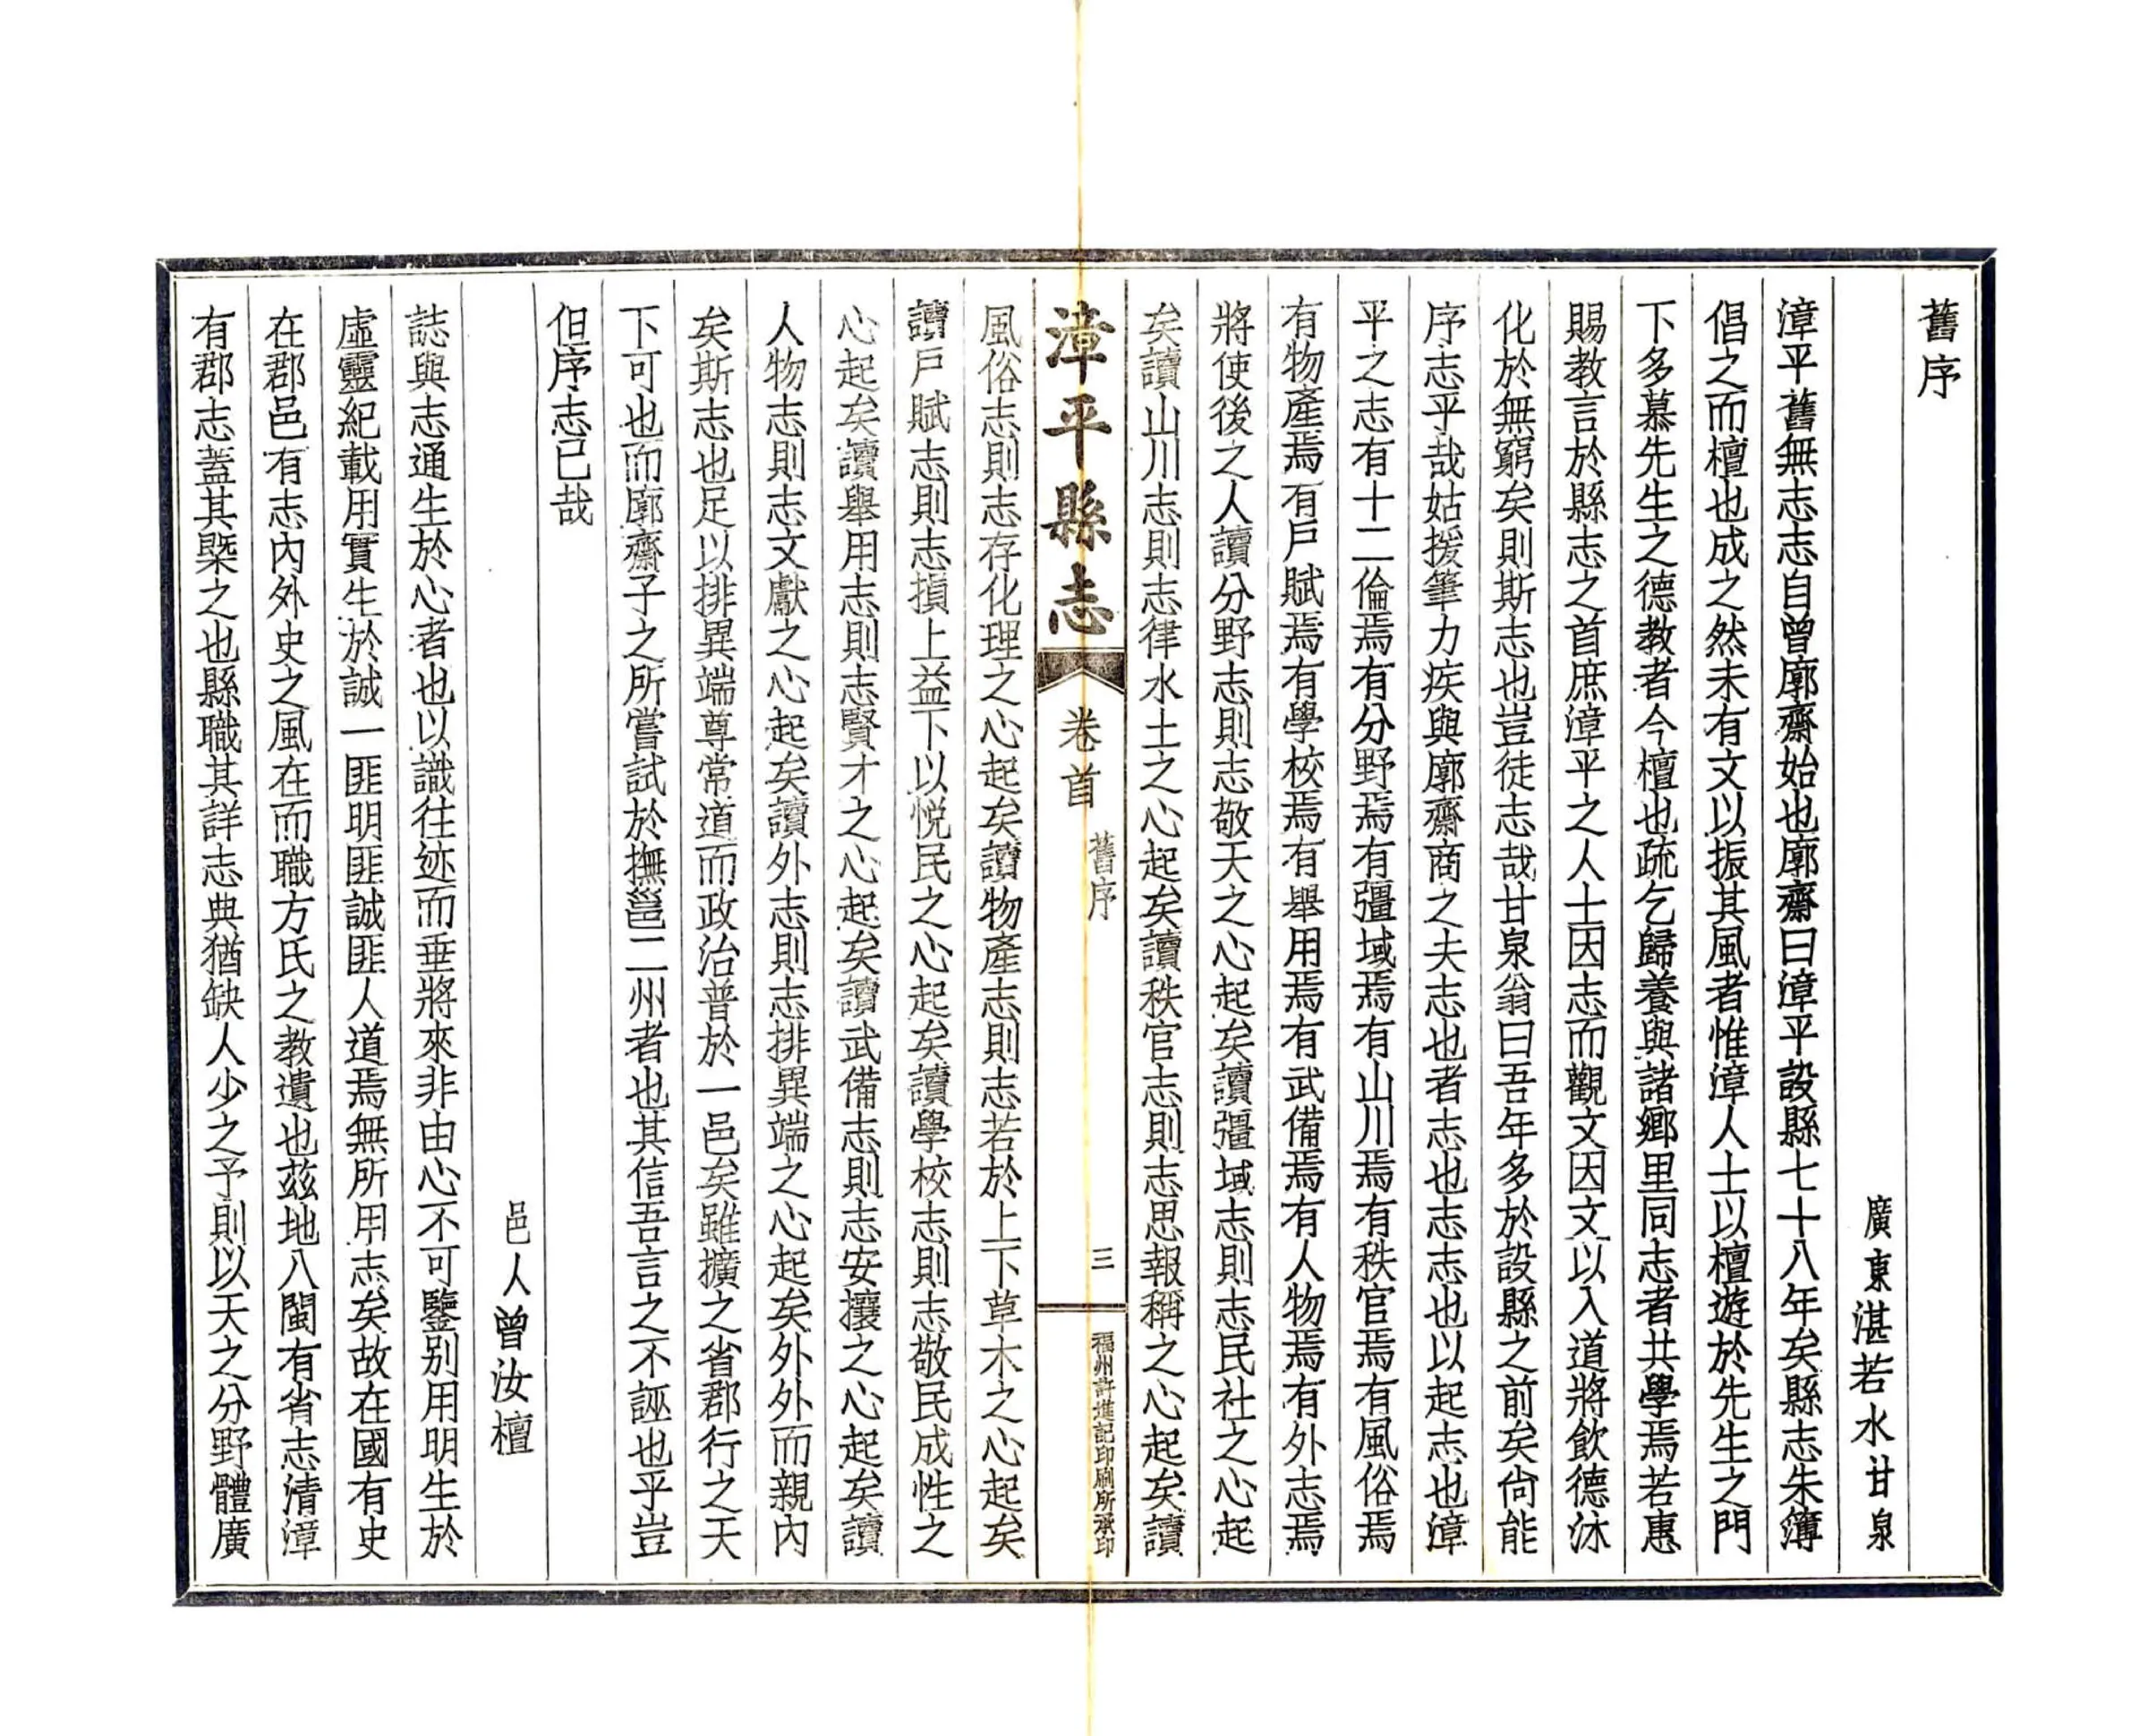 舊序
廣東湛若水甘泉
漳平舊無志志自曾廓齋始也廓齋曰漳平設縣七十八年矣縣志朱簿
倡之而檀也成之然未有文以振其風者惟漳人士以檀遊於先生之門
下多慕先生之德教者今檀也疏乞歸養與諸鄉里同志者共學焉若惠
賜教言於縣志之首庶漳平之人士因志而觀文因文以入道將飲德沐
化於無窮矣則斯志也豈徒志哉甘泉翁曰吾年多於設縣之前矣尙能
序志乎哉姑援筆力疾與廓齋商之夫志也者志也志志也以起志也漳
平之志有十二倫焉有分野焉有彊域焉有山川焉有秩官焉有風俗焉
有物產焉有戶賦焉有學校焉有舉用焉有武備焉有人物焉有外志焉
將使後之人讀分野志則志敬天之心起矣讀彊域志則志民社之心起
矣讀山川志則志律水土之心起矣讀秩官志則志思報稱之心起矣讀
漳平縣志
卷首
舊序
三
福州許進記印刷所承印
風俗志則志存化理之心起矣讀物產志則志若於上下草木之心起矣
讀戶賦志則志損上益下以悅民之心起矣讀學校志則志敬民成性之
心起矣讀舉用志則志賢才之心起矣讀武備志則志安攘之心起矣讀
人物志則志文獻之心起矣讀外志則志排異端之心起矣外外而親內
矣斯志也足以排異端尊常道而政治普於一邑矣雖擴之省郡行之天
下可也而廓齋子之所嘗試於撫邕二州者也其信吾言之不誣也乎豈
但序志已哉
邑人曾汝檀
誌與志通生於心者也以識往迹而垂將來非由心不可鑒别用明生於
虛靈紀載用實生於誠一匪明匪誠匪人道焉無所用志矣故在國有史
在郡邑有志內外史之風在而職方氏之教遺也茲地八閩有省志清漳
有郡志蓋其槩之也縣職其詳志典猶缺人少之予則以天之分野體廣